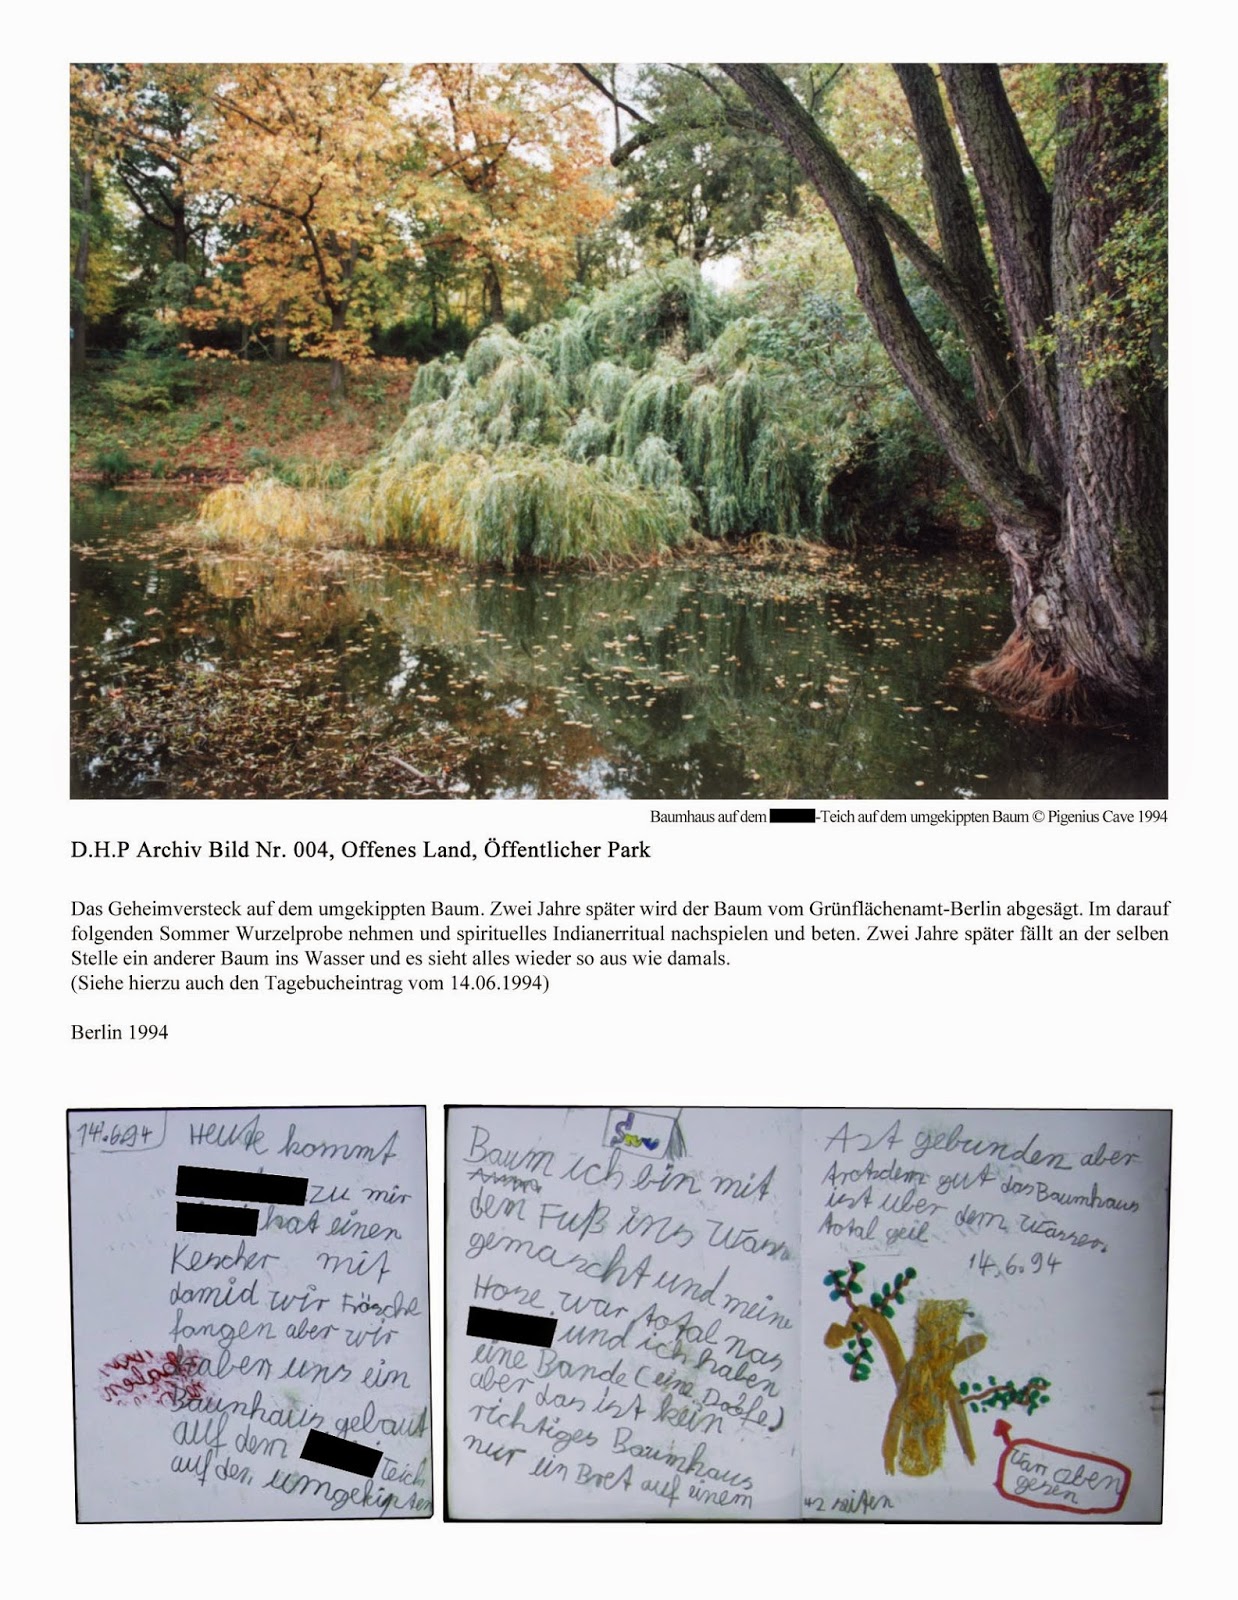 Baumhaus auf dem -Teich auf dem umgekippten Baum © Pigenius Cave 1994
D.H.P Archiv Bild Nr. 004, Offenes Land, Öffentlicher Park
Das Geheimversteck auf dem umgekippten Baum. Zwei Jahre später wird der Baum vom Grünflächenamt-Berlin abgesägt. Im darauf
folgenden Sommer Wurzelprobe nehmen und spirituelles Indianerritual nachspielen und beten. Zwei Jahre später fällt an der selben
Stelle ein anderer Baum ins Wasser und es sieht alles wieder so aus wie damals.
(Siehe hierzu auch den Tagebucheintrag vom 14.06.1994)
Berlin 1994
14.6.94
Heute kommt
zu mir
hat einen
Kescher mit
damid wir Frösche
fangen aber wir
haben uns ein
Baumhaus gebaut
auf dem Teich
auf den umgekipten
Baum ich bin mit
dem Fuß ins Wasser
gemascht und meine
Hose war total nas
und ich haben
eine Bande (eine Doofe)
aber das ist kein
richtiges Baumhaus
nur ein Bret auf einem
Ast gebunden aber
trotsdem gut das Baumhaus
ist über dem Wasser.
total geil
14.6.94
Van oben
gesen
42 seiten